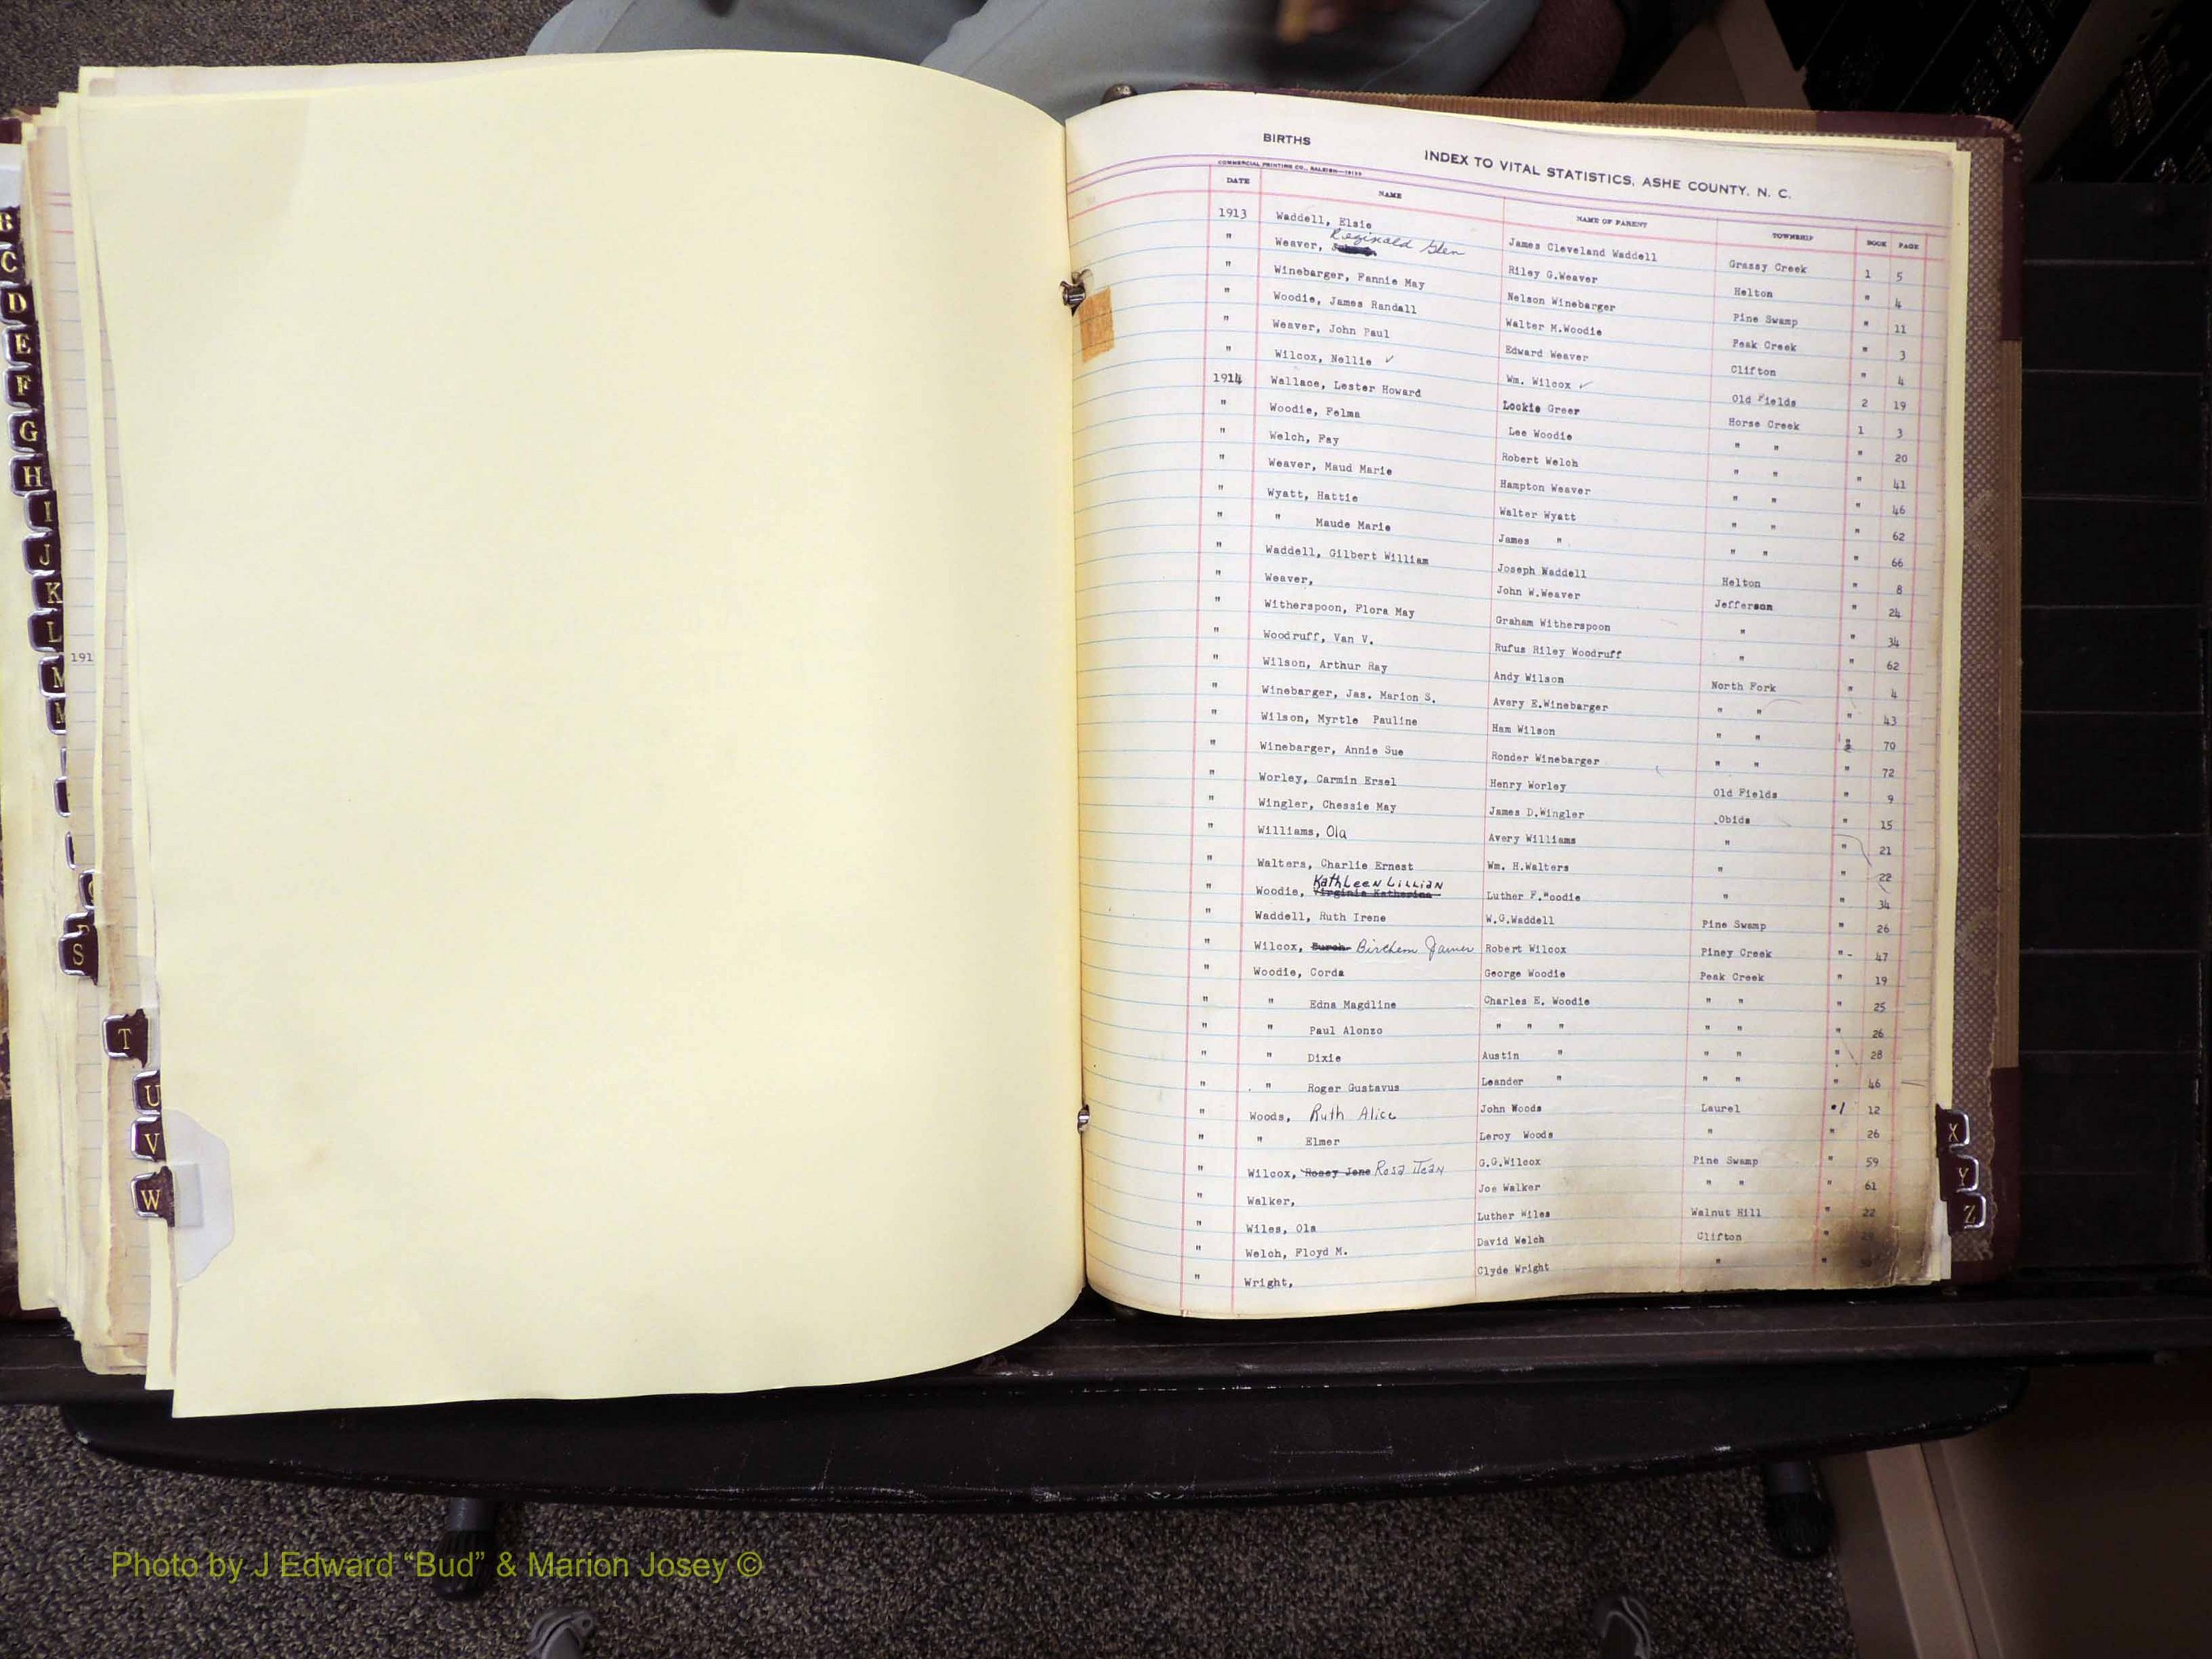 BIRTHS
INDEX TO VITAL STATISTICS, ASHE COUNTY, N. C.
COMMERCIAL PRINTING CO., RALEIGH
DATE NAME NAME OF PARENT TOWNSHIP BOOK PAGE
1913 Waddell, Elsie James Cleveland Waddell Grassy Creek 1 5
" Weaver, Reginald Glen Riley G.Weaver Helton " 4
" Winebarger, Fannie May Nelson Winebarger Pine Swamp " 11
" Woodie, James Randall Walter M.Woodie Peak Creek " 3
" Weaver, John Paul Edward Weaver Clifton " 4
" Wilcox, Nellie ✓ Wm. Wilcox ✓ Old Fields 2 19
1914 Wallace, Lester Howard Lockie Greer Horse Creek 1 3
" Woodie, Felma Lee Woodie " " " 20
" Welch, Fay Robert Welch " " " 41
" Weaver, Maud Marie Hampton Weaver " " " 46
" Wyatt, Hattie Walter Wyatt " " " 62
" " Maude Marie James " " " " 66
" Waddell, Gilbert William Joseph Waddell Helton " 8
" Weaver, John W.Weaver Jefferson " 24
" Witherspoon, Flora May Graham Witherspoon " " 34
" Woodruff, Van V. Rufus Riley Woodruff " " 62
" Wilson, Arthur Ray Andy Wilson North Fork " 4
" Winebarger, Jas. Marion S. Avery E.Winebarger " " " 43
" Wilson, Myrtle Pauline Ham Wilson " " " 70
" Winebarger, Annie Sue Ronder Winebarger " " " 72
" Worley, Carmin Ersel Henry Worley Old Fields " 9
" Wingler, Chessie May James D.Wingler Obids " 15
" Williams, Ola Avery Williams " " 21
" Walters, Charlie Ernest Wm. H.Walters " " 22
" Woodie, Virginia Katherine Kathleen Lillian Luther F.Woodie " " 34
" Waddell, Ruth Irene W.G.Waddell Pine Swamp " 26
" Wilcox, Burch Birchem James Robert Wilcox Piney Creek " 47
" Woodie, Corda George Woodie Peak Creek " 19
" " Edna Magdline Charles E. Woodie " " " 25
" " Paul Alonzo " " " " " " 26
" " Dixie Austin " " " " 28
" " Roger Gustavus Leander " " " " 46
" Woods, Ruth Alice John Woods Laurel " 1 12
" " Elmer Leroy Woods " " 26
" Wilcox, Rosey Jane Rosa Jean G.G.Wilcox Pine Swamp " 59
" Walker, Joe Walker " " " 61
" Wiles, Ola Luther Wiles Walnut Hill " 22
" Welch, Floyd M. David Welch Clifton "
" Wright, Clyde Wright " "
B
C
D
E
F
G
H
I
J
K
L
M
191
S
T
U
V
W
X
Y
Z
Photo by J Edward “Bud” & Marion Josey ©